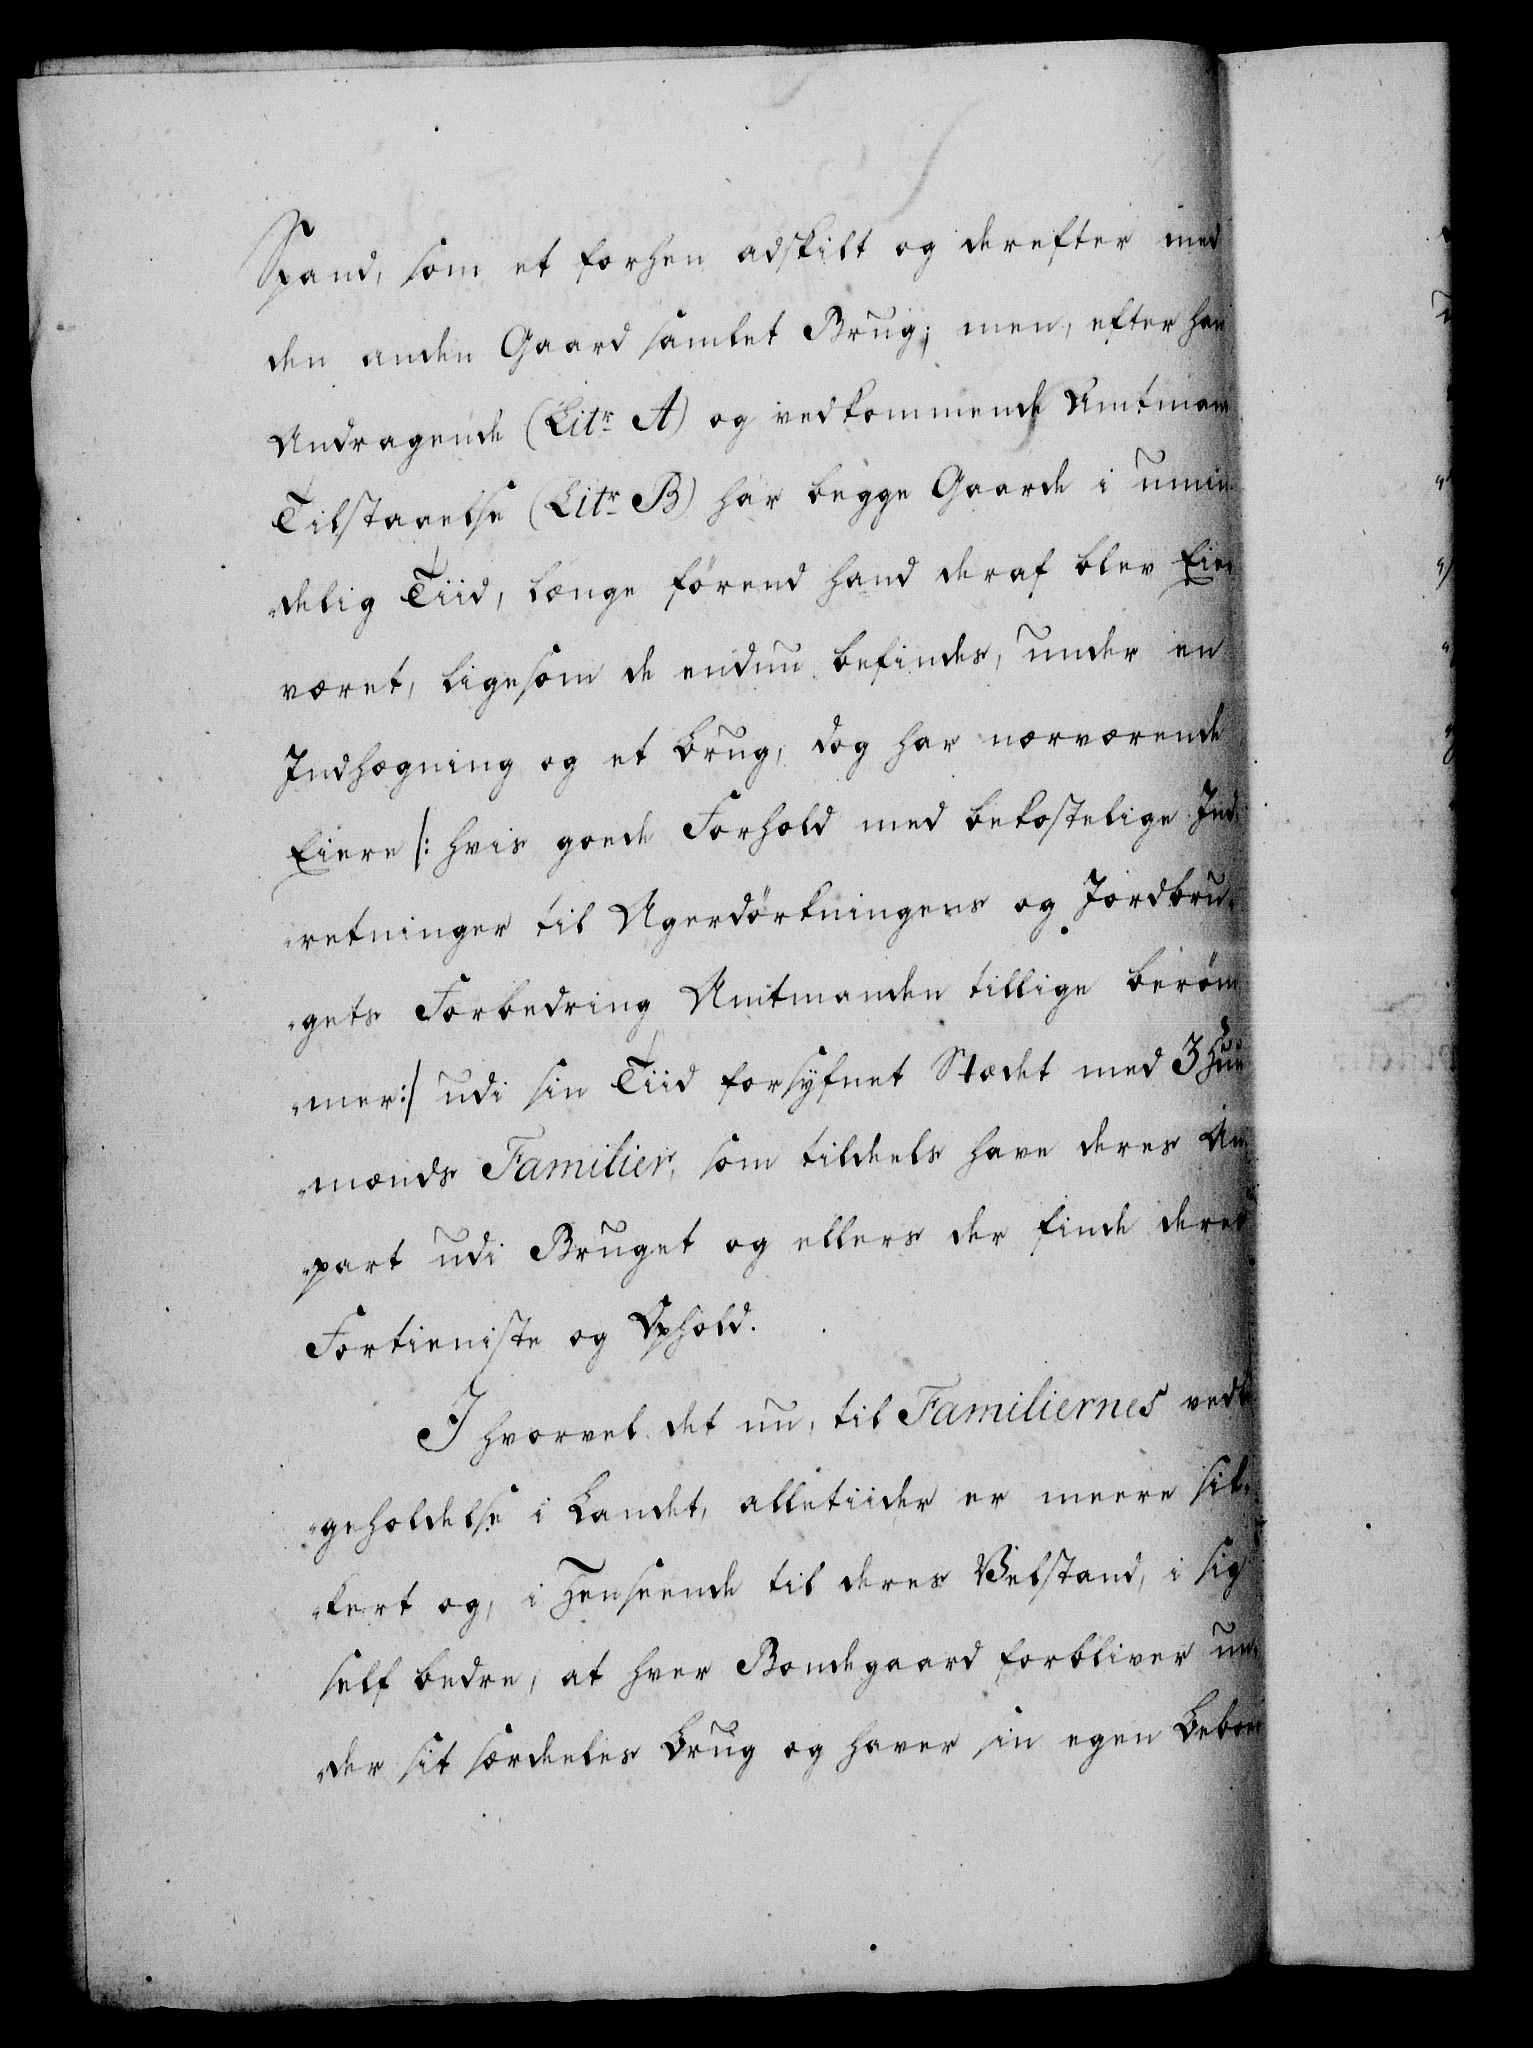 Spand, som et forhen adskilt og derefter med
den anden Gaard samlet Brug; men, efter han
Andragende (Litr A) og vedkommende Amtman
Tilstaaelse (Litr B) har begge Gaarde i umin
„delig Tiid, længe førend hand deraf blev Eie
været, ligesom de endnu befindes, under en
Indhægning og et brug, dog har nærværende
Eiere /: hvis goede Forhold med bekostelige Ind
„retninger til Agerdörkningens og Jordbru„
„gets Forbedring Amtmanden tillige beröm
„mer :/ udi sin Tiid forsyfnet Stædet med 3 Huus
„mænds Familier, som tildeels have deres An„
„part udi Bruget og ellers der finde deres
Fortieniste og Ophold.
I hvorvel det nu, til Familiernes vedl
„geholdelse i Landet, alletiider er meere sik„
„kert og, i Henseende til deres Velstand, i sig
self bedre, at hver Bondegaard forbliver un„
„der sit særdeeles Brug og haver sin egen Beboe